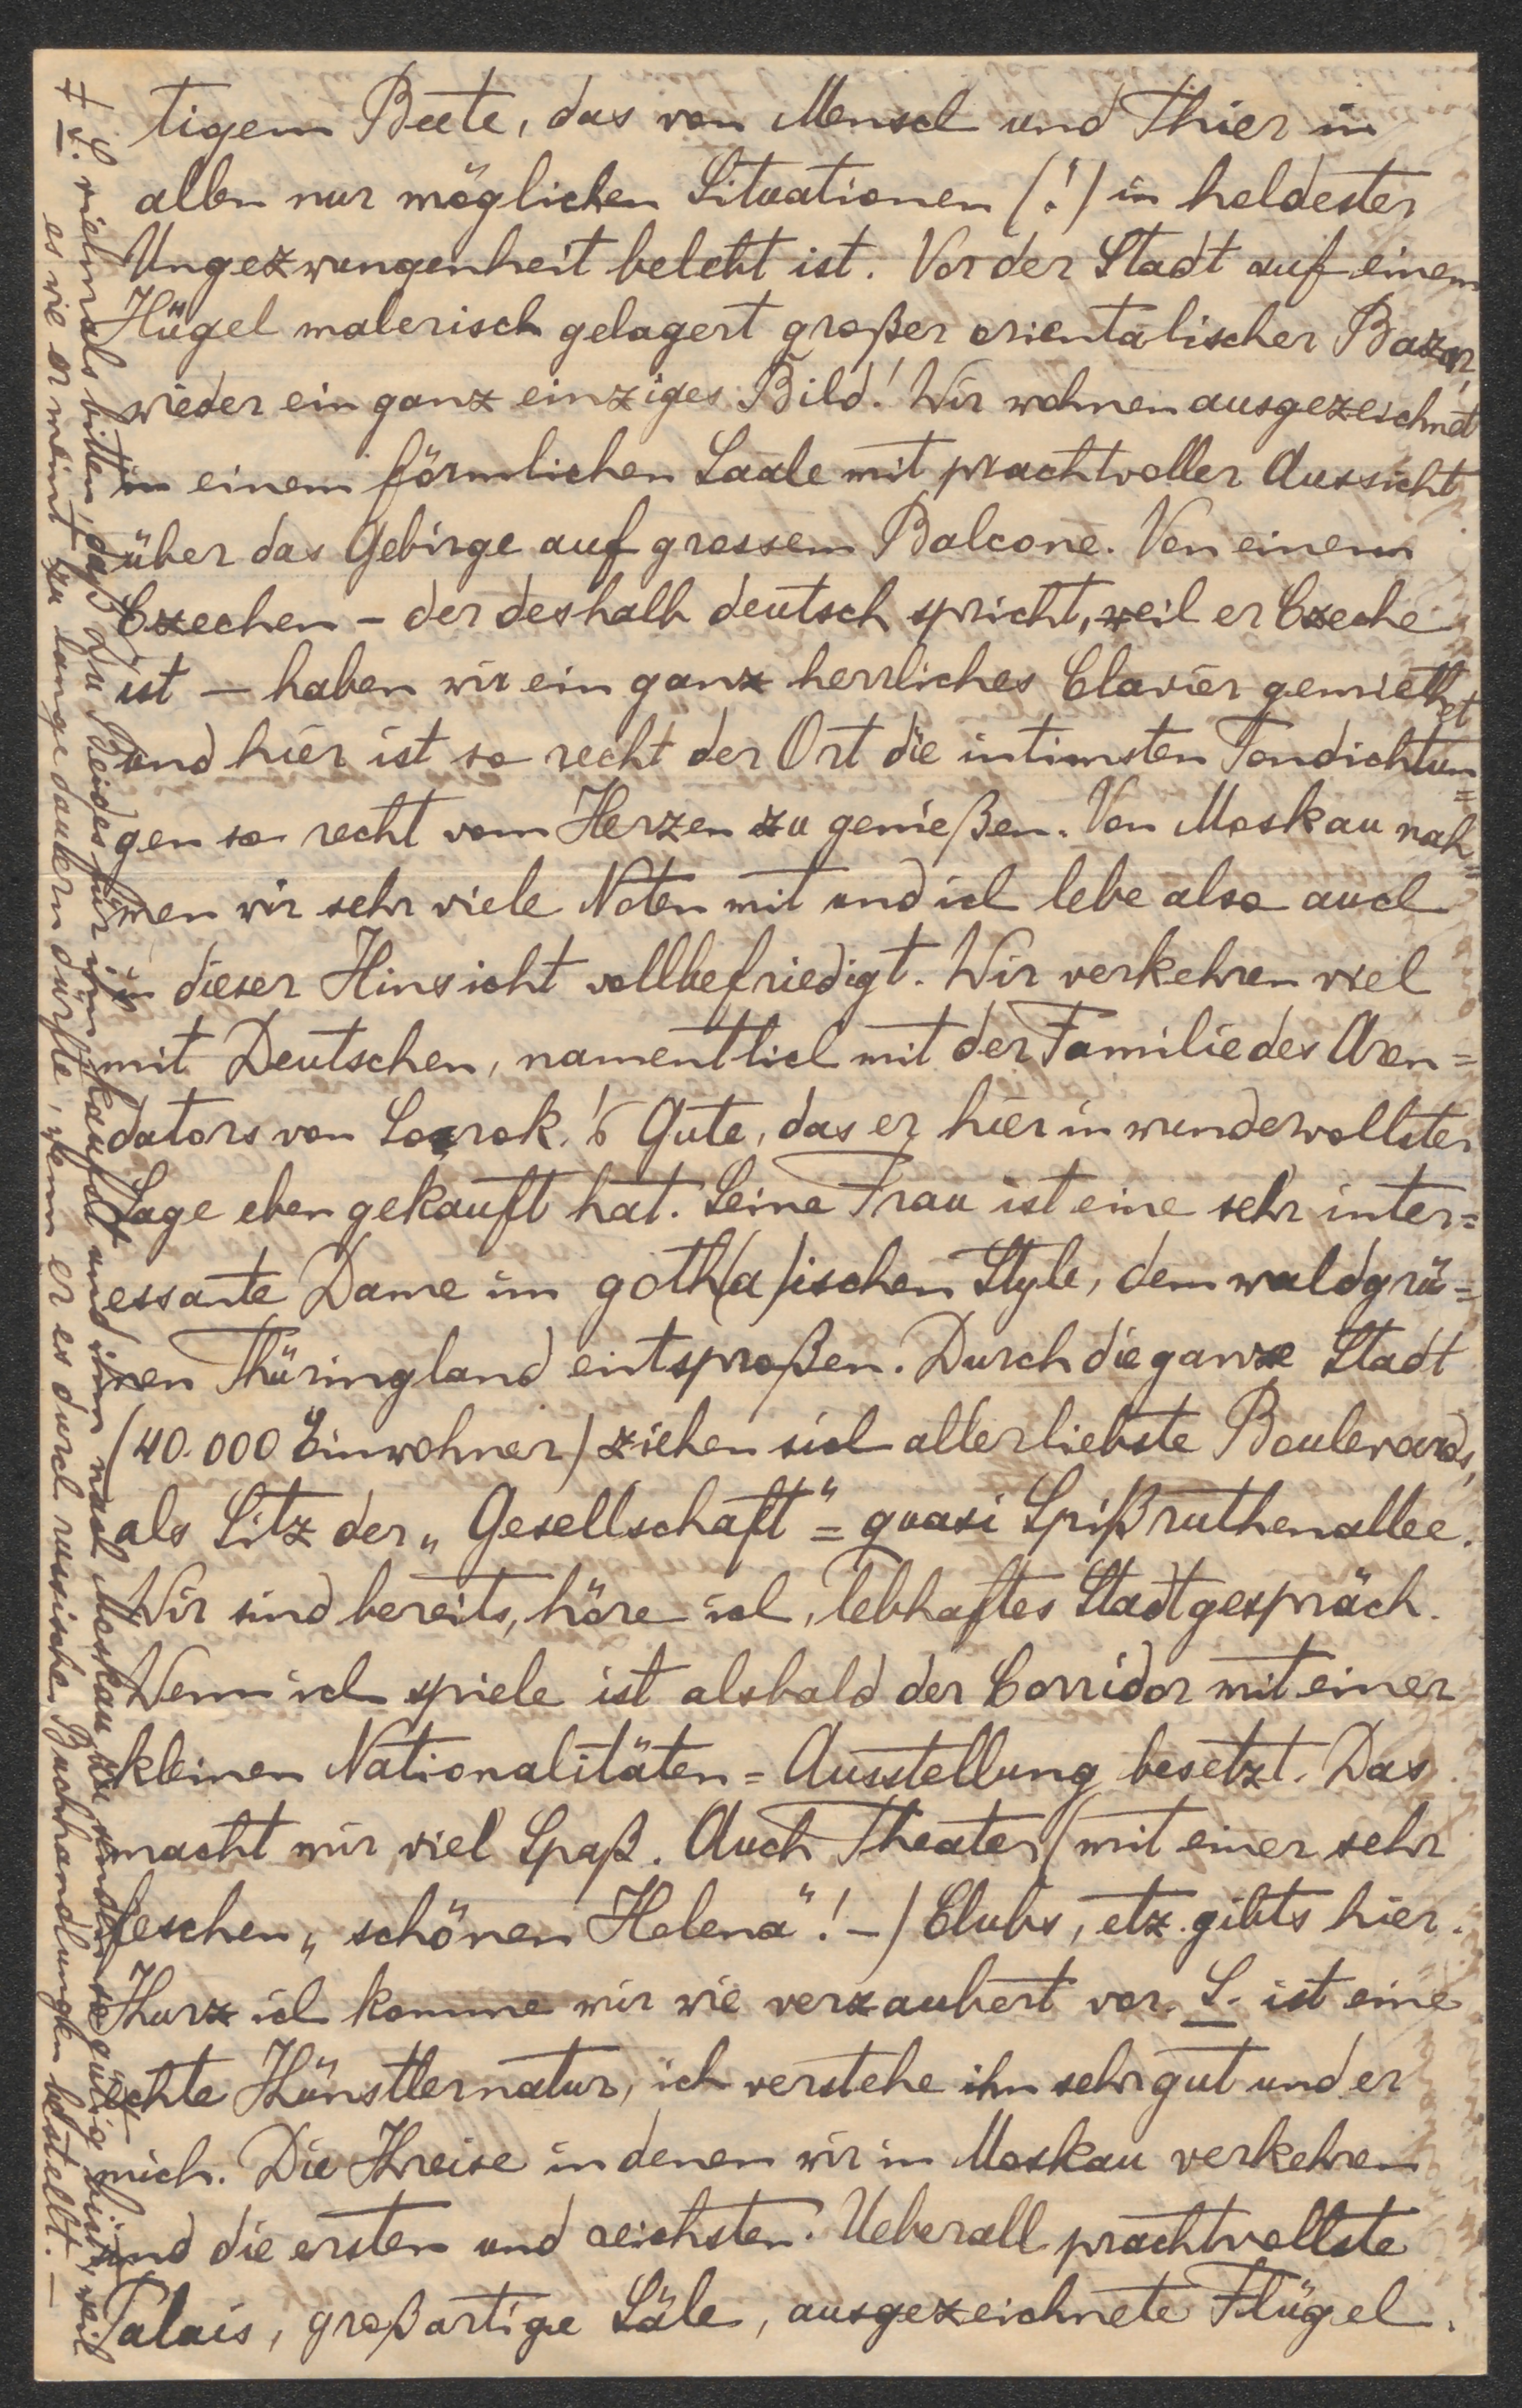 tigem Beete, das von Mensch und Thier in
allen nur möglichen Situationen (!) in holdester
Ungezwungenheit belebt ist. Vor der Stadt auf einem
Hügel malerisch gelagert großer orientalischer Bazar,
wieder ein ganz einziges Bild! Wir wohnen ausgezeichnet
in einem förmlichen Saale mit prachtvoller Aussicht
über das Gebirge auf grossem Balcone. Von einem
Czechen – der deshalb deutsch spricht, weil er Czeche
ist – haben wir ein ganz herrliches Clavier gemiethet
und hier ist so recht der Ort die intimsten Tondichtun=
gen so recht vom Herzen zu genießen. Von Moskau nah=
men wir sehr viele Noten mit und ich lebe also auch
in dieser Hinsicht vollbefriedigt. Wir verkehren viel
mit Deutschen, namentlich mit der Familie des Aren=
dators von Gute, das er hier in wundervollster
Lage eben gekauft hat. Seine Frau ist eine sehr inter=
essante Dame im goth(a)ischen Style, dem waldgrü=
nen Thüringland entsproßen. Durch die ganze Stadt
(40.000 Einwohner) ziehen sich allerliebste Boulevards,
als Sitz der „Gesellschaft" = quasi Spißruthenallee.
Wir sind bereits, höre ich, lebhaftes Stadtgespräch.
Wenn ich spiele ist alsbald der Corridor mit einer
kleinen Nationalitäten=Ausstellung besetzt. Das
macht mir viel Spaß. Auch Theater (mit einer sehr
feschen „schönen Helena"! –) Clubs, etz. gibts hier.
Kurz ich komme mir wie verzaubert vor. S. ist eine
echte Künstlernatur, ich verstehe ihn sehr gut und er
mich. Die Kreise in denen wir in Moskau verkehren
sind die ersten und reichsten. Ueberall prachtvollste
Palais, großartige Säle, ausgezeichnete Flügel.
S. vielmals bitten, daß Du Beides für ihn kaufst und ihm nach Moskau zu senden so gütig bist, weil
es wie er meint zu lange dauern dürfte, wenn er es durch russische Buchhandlungen bestellt. –